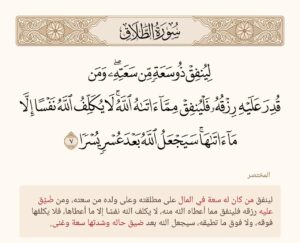 سُورَةُ الطَّلَاقِ
لِيُنفِقْ ذُو سَعَةٍ مِّن سَعَتِهِۦ ۖ وَمَن
قُدِرَ عَلَيْهِ رِزْقُهُۥ فَلْيُنفِقْ مِمَّآ ءَاتَىٰهُ ٱللَّهُ ۚ لَا يُكَلِّفُ ٱللَّهُ نَفْسًا إِلَّا
مَآ ءَاتَىٰهَا ۚ سَيَجْعَلُ ٱللَّهُ بَعْدَ عُسْرٍ يُسْرًا ٧
المختصر
لينفق من كان له سعة في المال على مطلقته وعلى ولده من سعته، ومن ضُيِّق
عليه رزقه فلينفق مما أعطاه الله منه، لا يكلف الله نفسًا إلا ما أعطاها، فلا يكلفها
فوقه، ولا فوق ما تطيقه، سيجعل الله بعد ضيق حاله وشدتها سعة وغنى.